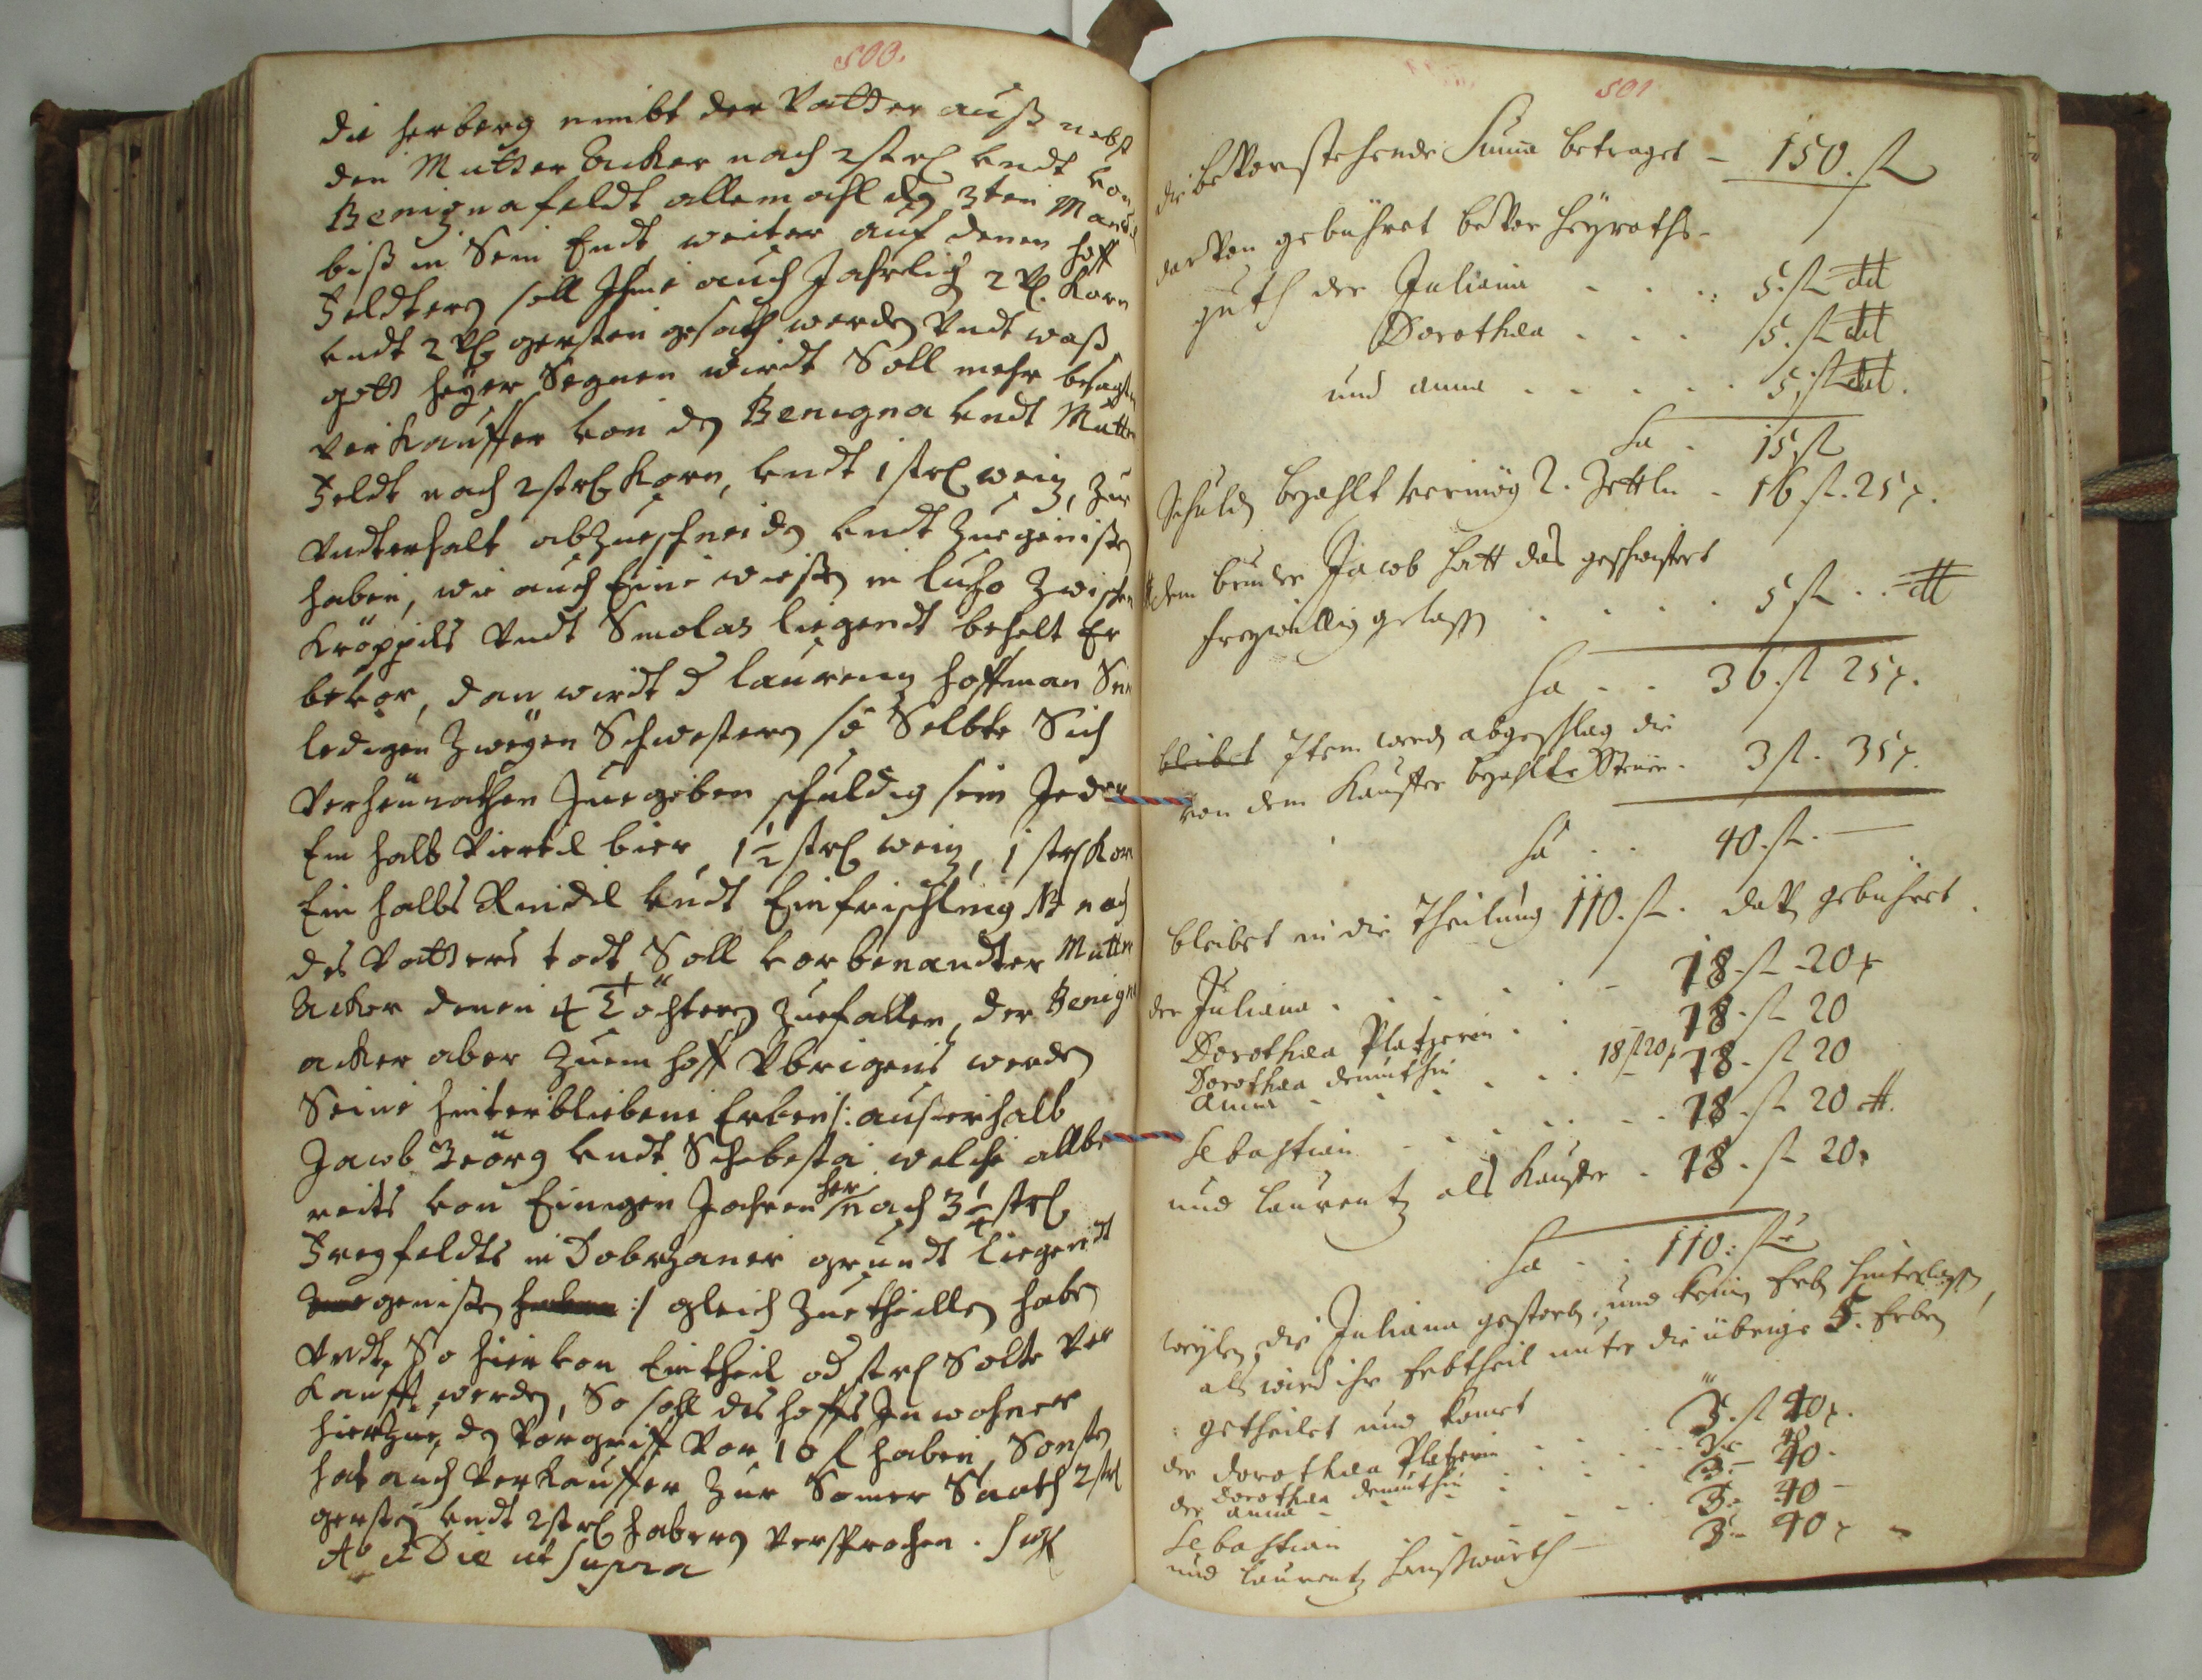 500.
Die herberg nimbt der Vatter auß nebst
den Mutter Acker nach 2 strl undt von
Benignafeldt allemahl dz 3ten Mandl
biß in Sein Endt, weiter auf denen hoff
Feldtern soll Ihme auch Jahrlich 2 Vl. Korn
undt 2 Vl gersten gesath werden Undt waß
gott heÿer Segnen wirdt Soll mehr besagter
Verkauffer von dz Benigna undt Mutter
Feldt nach 2 strl Korn, undt 1 strl weiz, zur
Undterhalt abzueschneiden undt Zuegenissen
haben, wie auch Eine wiesen in luho zwischen
Kröppils Undt Smolas liegendt behalt Er
bevor, dan wirdt d laurenz hoffman Sein
ledigen Zweÿen Schwestern so Selbte Sich
Verheürathen Zuegeben schuldig sein Jeder
Ein halb Viertel bier, 1½ strl weiz, 1 strl Korn
Ein halbs Rindel undt Ein frischling NB nach
des Vatters todt Soll vorbenandter Mutter
Acker denen 4 Töchtern Zuefallen, der Benigna
acker aber Zuem hoff Übrigens werden
Seine hinterbliebene Erben /: ausserhalb
Jacob Geörg undt Schebesta welche allbe
reits von Einigen Jahren her nach 3¼ strl
Freyfeldts in Dobrzaner grundt liegendt
genissen :/ gleich Zuetheillen haben
Undt So hiervon Ein theil od strl Solte Ver
kaufft werden, So soll des hoffs Inwohner
hierzue, dz Vorgriff Vor 10 f haben, Sonsten
hat auch Verkauffer Zur Somer Saath 2 strl
gersten undt 2 strl habern Versprochen.
Ao et Die ut Supra
501
die bevorstehende Suma betraget - 150. fl
darvon gebühret bevor heÿraths-
guth der Juliana . . . . 5. fl dt
Dorothea . . . 5. fl dt
und anna . . . . . 5. fl dt.
Sa . 15 fl
Schulden bezahlt vermög 2. Zettln - 16 fl. 25 x.
dem bruder Jacob hatt das geschwistert
freÿwillig gelassen . . . . 5 fl . . dt
Sa . . 36. fl 25 x.
bleibet Item werden abgeschlag die
von dem Kauffer bezahlte Steüer. 3 fl. 35 x.
Sa . . 40. fl. —
bleibet in die Theilung 110. fl. davon gebühret
der Juliana . . . . . - 18. fl 20 x
Dorothea Platzerin . . . 18. fl 20
Dorothea demuthin . . . 18 fl 20 x 18. fl 20
anna - . . . . . 18. fl 20 dt.
Sebastian . . . . .
und Laurentz als Kauffer . 18. fl 20.
Sa . . 110. fl
weÿlen die Juliana gestorben, und keine Erben hinterlassen,
als wird ihr Erbtheil unter die übrige 5. Erben
getheilet und komet
der Dorothea Platzerin . . . . 3. fl 40 x.
der Dorothea demuthin . . . 3. - 40.
der anna - . . . . 3. - 40 -
Sebastian . . . .
und Laurentz Haußwürth — 3. - 40 x